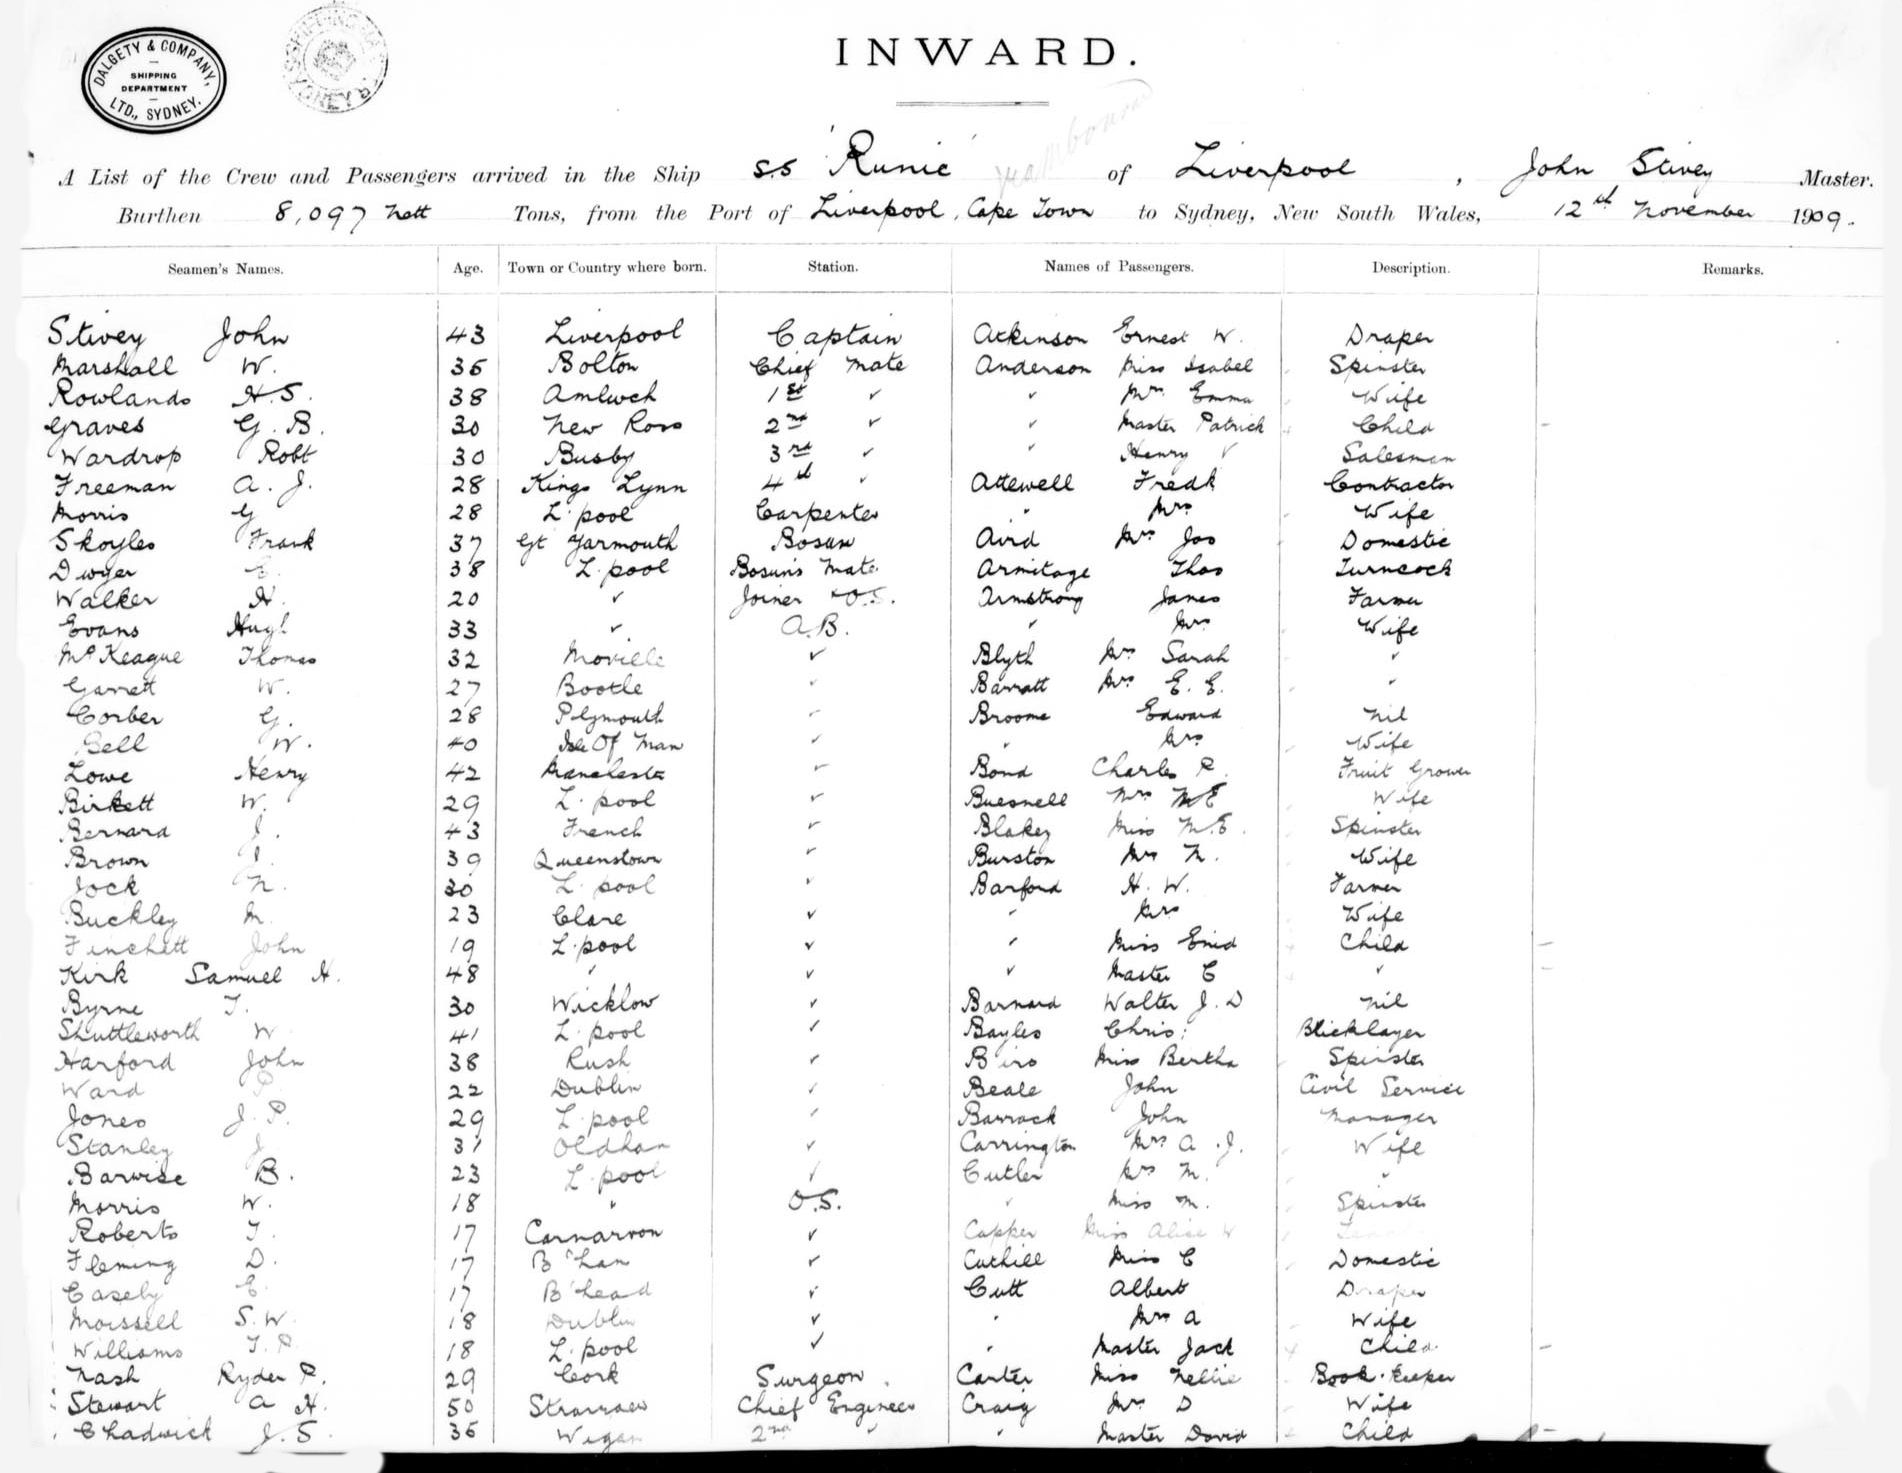 DALGETY & COMPANY,
SHIPPING
DEPARTMENT
LTD., SYDNEY.
INWARD.
A List of the Crew and Passengers arrived in the Ship S.S 'Runic' of Liverpool, John Stivey Master.
Burthen 8,097 Nett Tons, from the Port of Liverpool, Cape Town to Sydney, New South Wales, 12th November 1909.
Seamen's Names. Age. Town or Country where born. Station. Names of Passengers. Description. Remarks.
Stivey John 43 Liverpool Captain Atkinson Ernest W. Draper
Marshall W. 36 Bolton Chief Mate Anderson Miss Isabel Spinster
Rowlands H.S. 38 Amlwch 1st " " Mrs Emma Wife
Graves G.B. 30 New Ross 2nd " " Master Patrick Child
Wardrop Robt 30 Busby 3rd " " Henry V Salesman
Freeman A.J. 28 Kings Lynn 4th " Attewell Fredk Contractor
Morris G 28 L'pool Carpenter " Mrs Wife
Skoyles Frank 37 Gt Yarmouth Bosun Aird Mrs Jas Domestic
Dwyer E. 38 L'pool Bosun's Mate Armitage Thos Turncock
Walker H. 20 " Joiner & O.S. Armstrong James Farmer
Evans Hugh 33 " A.B. " Mrs Wife
McKeague Thomas 32 Moville " Blyth Mrs Sarah "
Garrett W. 27 Bootle " Barratt Mrs E.E. "
Corber G. 28 Plymouth " Broome Edward Nil
Bell W. 40 Isle Of Man " " Mrs Wife
Lowe Henry 42 Manchester " Bond Charles R. Fruit Grower
Birkett W. 29 L'pool " Buesnell Mrs M E Wife
Bernard J. 43 French " Blakey Miss M.E. Spinster
Brown J. 39 Queenstown " Burston Mrs N. Wife
Jock N. 30 L'pool " Barford H.W. Farmer
Buckley M. 23 Clare " " Mrs Wife
Finchett John 19 L'pool " " Miss Enid Child
Kirk Samuel H. 48 " " " Master C "
Byrne T. 30 Wicklow " Barnard Walter J.D Nil
Shuttleworth W 41 L'pool " Bayles Chris: Blicklayer
Harford John 38 Rush " Biro Miss Bertha Spinster
Ward P. 22 Dublin " Beale John Civil Service
Jones J.P. 29 L'pool " Barrack John Manager
Stanley J 31 Oldham " Carrington Mrs A.J. Wife
Barwise B. 23 L'pool " Cutler Mrs M. "
Morris W. 18 " O.S. " Miss M. Spinster
Roberts T. 17 Carnarvon " Capper Miss Alice W
Fleming D. 17 B'ham " Cuthill Miss C Domestic
Casely E. 17 B'head " Cutt Albert Draper
Moissell S.W. 18 Dublin " " Mrs A Wife
Williams T.P. 18 L'pool " " Master Jack Child
Nash Ryder P. 29 Cork Surgeon. Carter Miss Nellie Book-Keeper
Stewart A H. 50 Stranraer Chief Engineer Craig Mrs D Wife
Chadwick J.S. 36 Wigan 2nd " " Master David Child